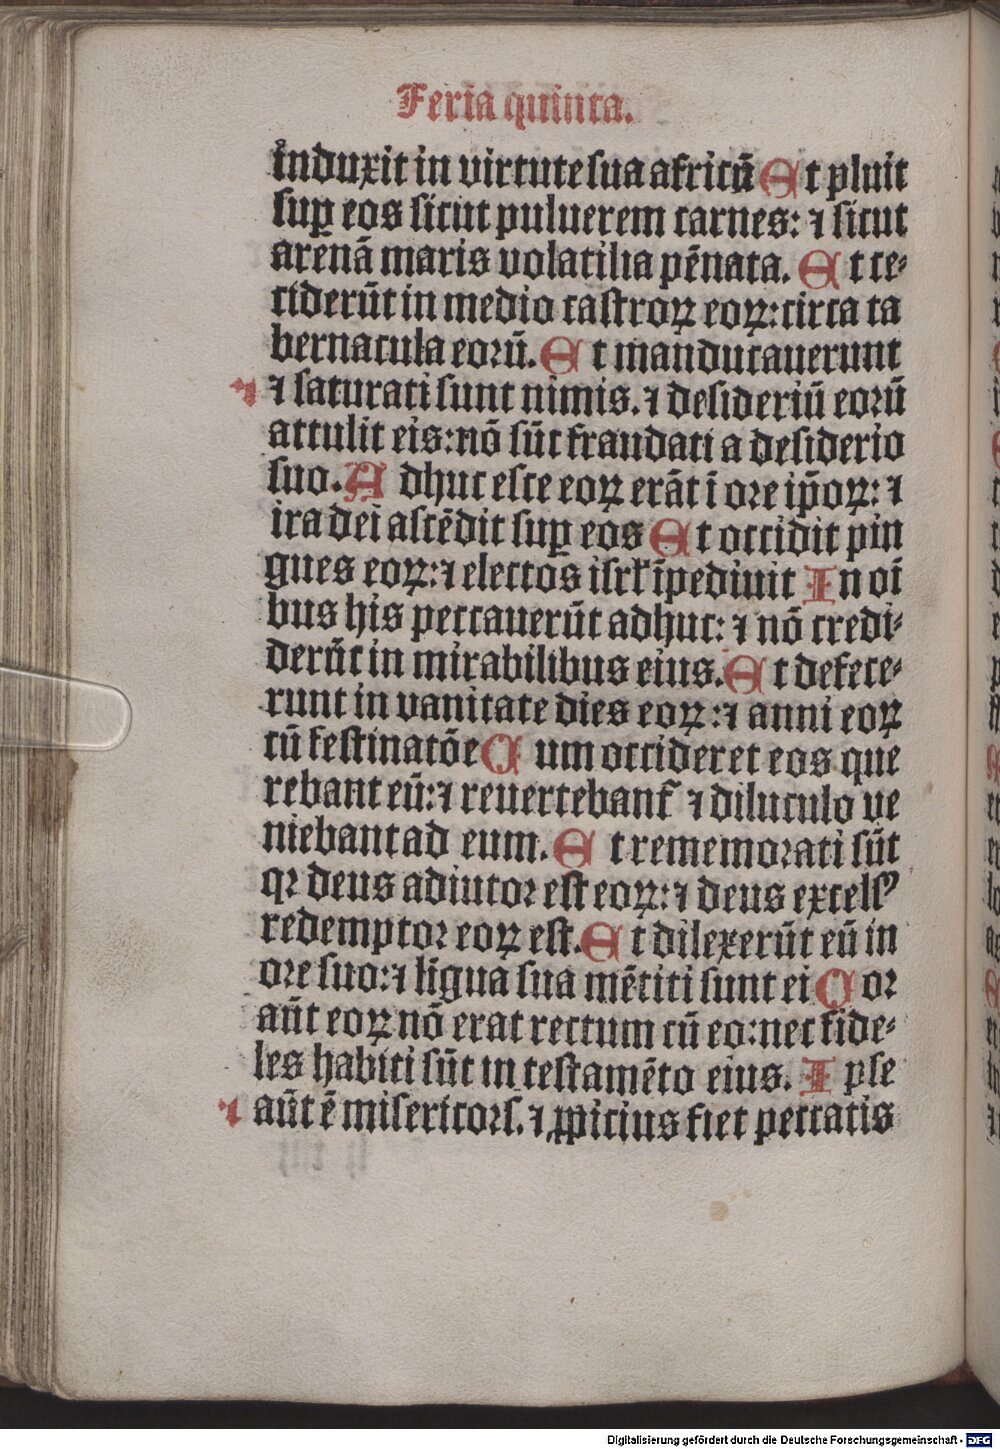 Feria quinta.
induxit in virtute sua africū Et pluit
suꝑ eos sicut puluerem carnes: ⁊ sicut
arenā maris volatilia pēnata. Et ce⸗
ciderūt in medio castroꝝ eoꝝ: circa ta
bernacula eorū. Et manducauerunt
⁊ saturati sunt nimis. ⁊ desideriū eorū
attulit eis: nō sūt fraudati a desiderio
suo. Adhuc esce eoꝝ erāt ī ore ip̄oꝝ: ⁊
ira dei ascēdit suꝑ eos Et occidit pin
gues eoꝝ: ⁊ electos isrl̄ īpediuit In oī
bus his peccauerūt adhuc: ⁊ nō credi⸗
derūt in mirabilibus eius. Et defece⸗
runt in vanitate dies eoꝝ: ⁊ anni eoꝝ
cū festinatōe Cum occideret eos que
rebant eū: ⁊ reuertebant᷑ ⁊ diluculo ve
niebant ad eum. Et rememorati sūt
qꝛ deus adiutor est eoꝝ: ⁊ deus excelsꝰ
redemptor eoꝝ est. Et dilexerūt eū in
ore suo: ⁊ līgua sua mētiti sunt ei Cor
aūt eoꝝ nō erat rectum cū eo: nec fide⸗
les habiti sūt in testamēto eius. Ipse
aūt ē misericors. ⁊ ꝓpicius fiet peccatis
Digitalisierung gefördert durch die Deutsche Forschungsgemeinschaft - DFG